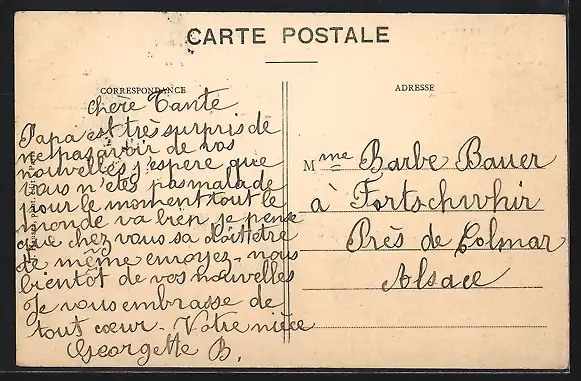 CARTE POSTALE
CORRESPONDANCE
ADRESSE
chère Tante
Papa est très surpris de
ne pas avoir de vos
nouvelles j'espère que
vous n'êtes pas malade
pour le moment tout le
monde va bien je pense
que chez vous sa doit être
de même envoyez-nous
bientôt de vos nouvelles
Je vous embrasse de
tout cœur. Votre nièce
Georgette B.
Mme Barbe Bauer
à Fortschwhir
Près de Colmar
Alsace